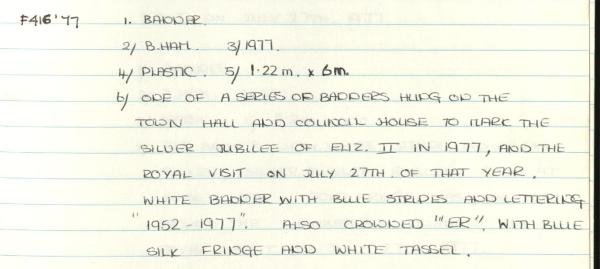 F416'77 1. BANNER.
2/ B.HAM. 3/1977.
4/ PLASTIC. 5/ 1.22m. x 6m.
6/ ONE OF A SERIES OF BANNERS HUNG ON THE
TOWN HALL AND COUNCIL HOUSE TO MARK THE
SILVER JUBILEE OF ELIZ. II IN 1977, AND THE
ROYAL VISIT ON JULY 27TH. OF THAT YEAR.
WHITE BANNER WITH BLUE STRIPES AND LETTERING
"1952-1977". ALSO CROWNED "ER", WITH BLUE
SILK FRINGE AND WHITE TASSEL.